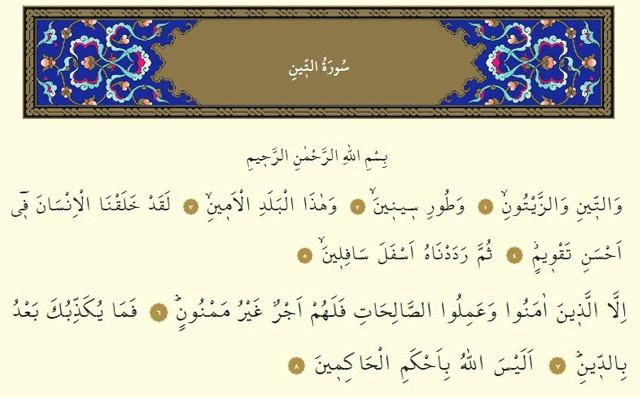 سُورَةُ التّ۪ينِ
بِسْمِ اللهِ الرَّحْمٰنِ الرَّح۪يمِ
وَالتّ۪ينِ وَالزَّيْتُونِۙ ﴿١﴾ وَطُورِ س۪ين۪ينَۙ ﴿٢﴾ وَهٰذَا الْبَلَدِ الْاَم۪ينِۙ ﴿٣﴾ لَقَدْ خَلَقْنَا الْاِنْسَانَ ف۪ٓي
اَحْسَنِ تَقْو۪يمٍۘ ﴿٤﴾ ثُمَّ رَدَدْنَاهُ اَسْفَلَ سَافِل۪ينَۙ ﴿٥﴾
اِلَّا الَّذ۪ينَ اٰمَنُوا وَعَمِلُوا الصَّالِحَاتِ فَلَهُمْ اَجْرٌ غَيْرُ مَمْنُونٍۜ ﴿٦﴾ فَمَا يُكَذِّبُكَ بَعْدُ
بِالدّ۪ينِۜ ﴿٧﴾ اَلَيْسَ اللهُ بِاَحْكَمِ الْحَاكِم۪ينَ ﴿٨﴾